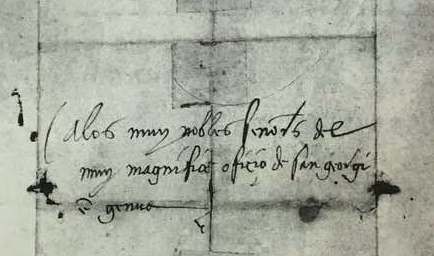 A los muy nobles señores del
muy magnifico ofiçio de san georgi
ē genua